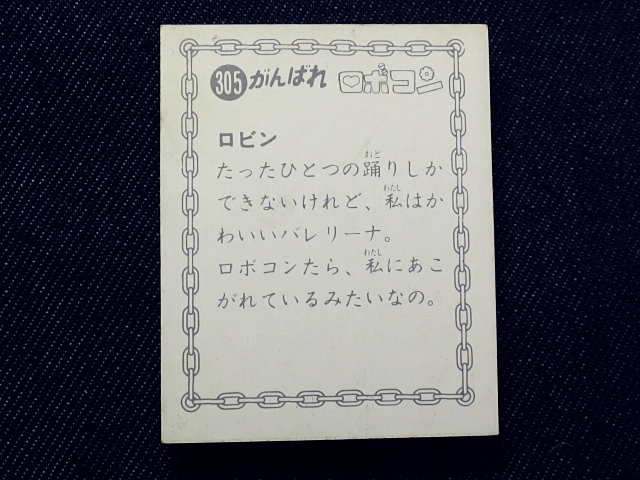 305 がんばれ ロボコン
ロビン
たったひとつの踊りしか
できないけれど、私はか
わいいバレリーナ。
ロボコンたら、私にあこ
がれているみたいなの。